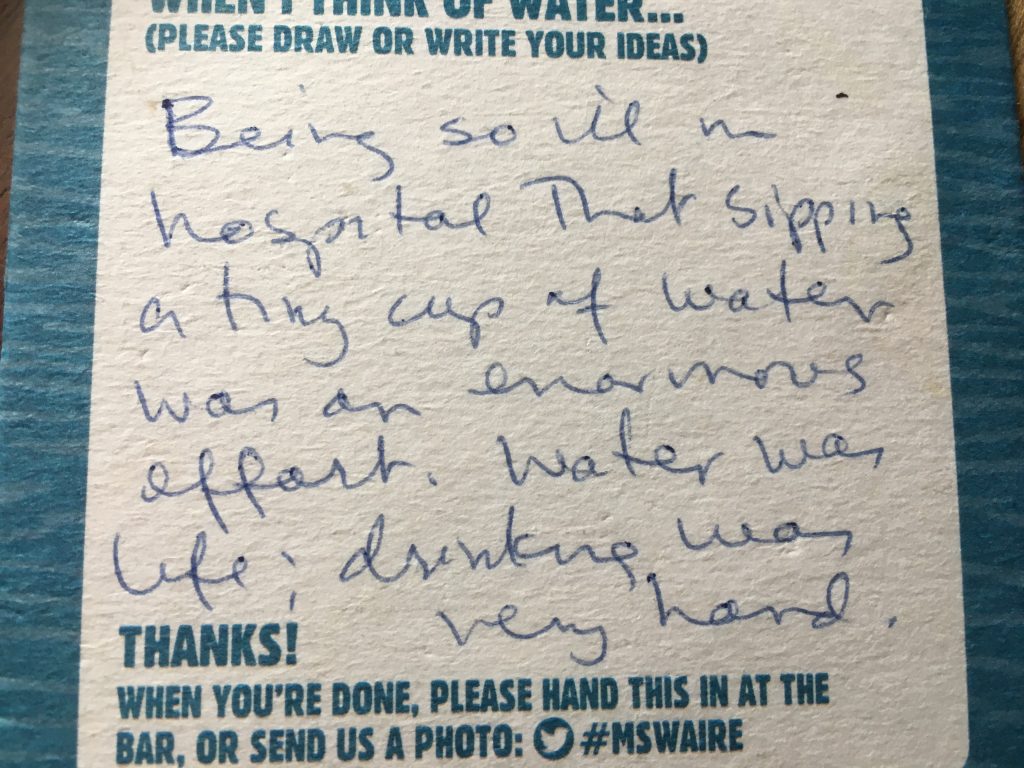 WHEN I THINK OF WATER...
(PLEASE DRAW OR WRITE YOUR IDEAS)
Being so ill in
hospital That sipping
a tiny cup of water
was an enormous
effort. Water was
life; drinking was
very hard.
THANKS!
WHEN YOU'RE DONE, PLEASE HAND THIS IN AT THE
BAR, OR SEND US A PHOTO: #MSWAIRE